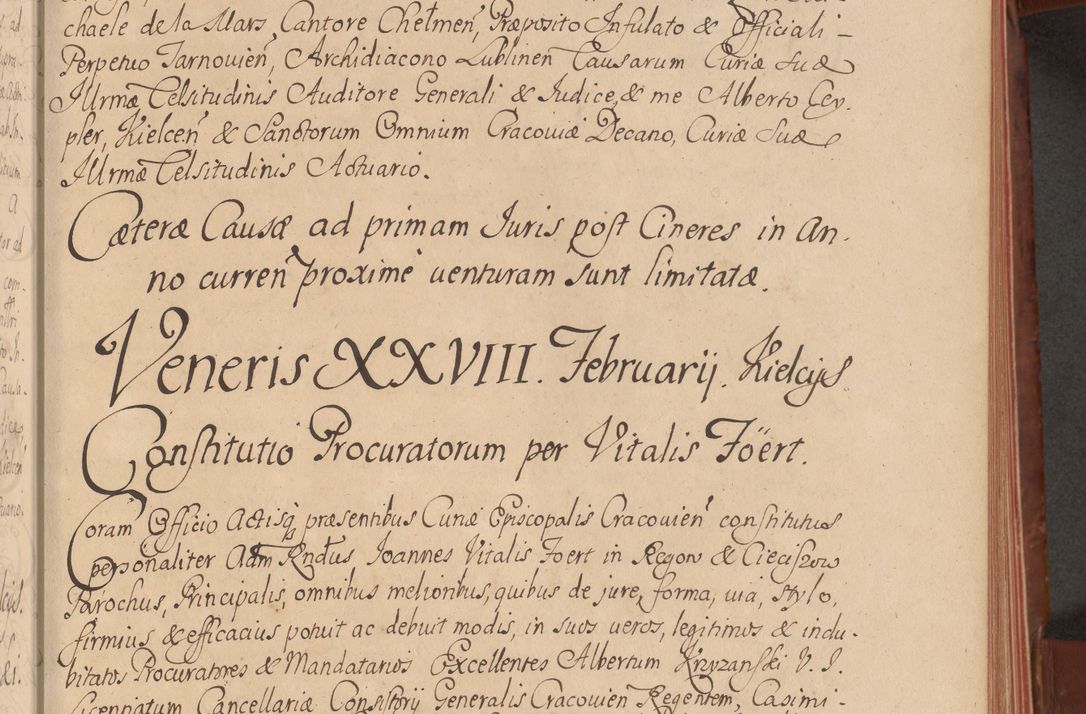 chaele de la Mars, Cantore Chełmen, Præposito Infulato & Officiali -
Perpetuo Tarnovien, Archidiacono Lublinen Causarum Curiæ Suæ
Illrmæ Celsitudinis Auditore Generali & Judice, & me Alberto Cey.
pler, Kielcen & Sanctorum Omnium Cracoviæ Decano, Curiæ Suæ
Illrmæ Celsitudinis Actuario.
Cæteræ Causæ ad primam Juris post Cineres in An.
no curren proximè venturam sunt limitatæ.
Veneris XXVIII. Februarij. Kielcijs
Constitutio Procuratorum per Vitalis Foërt.
Coram Officio Actisq præsentibus Curiæ Episcopalis Cracovien constitutus
personaliter Adm Rndus Joannes Vitalis Foert in Regow & Cieciszow
Parochus, Principalis, omnibus melioribus, quibus de jure, forma, via, stylo,
firmius, & efficacius potuit ac debuit modis, in suos veros, legitimos & indu -
bitatos Procuratores & Mandatarios Excellentes Albertum Krzyzanski V. J.
Licentiatum Cancellariæ Consistorij Generalis Cracovien Regentem, Casimi -